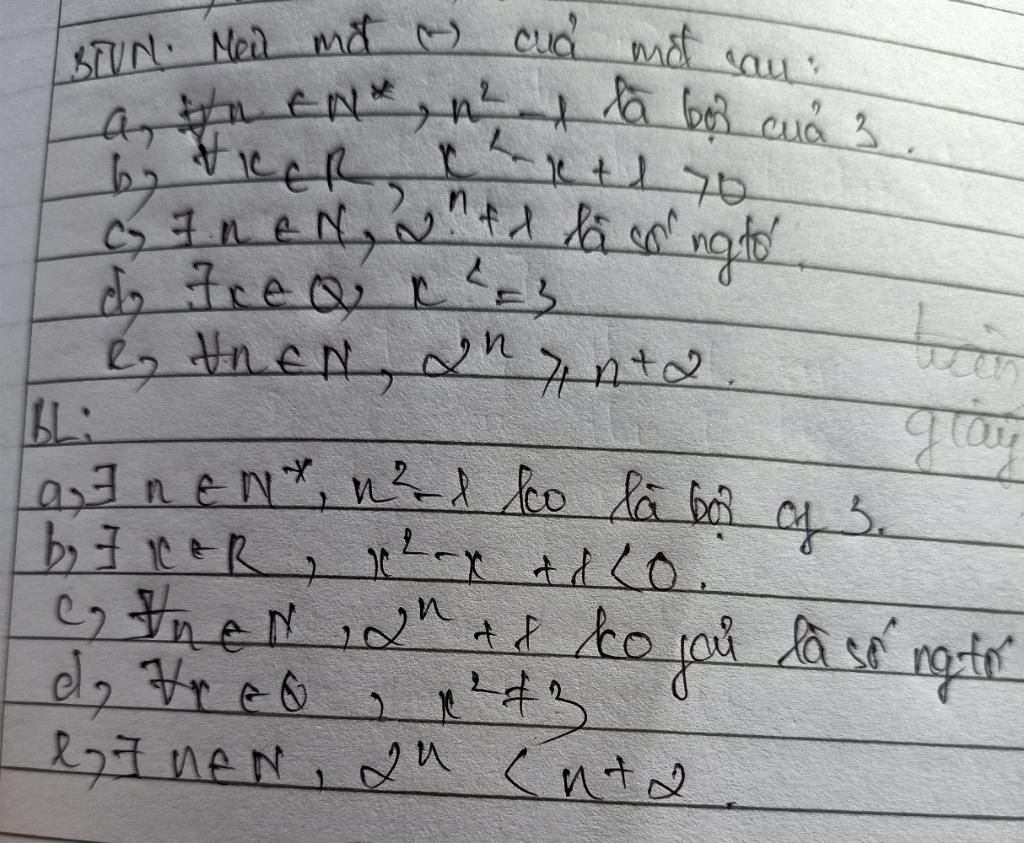 BTVN. Nêu mđ (-) của mđ sau:
a, ∀n ∈ N*, n² - 1 là bội của 3.
b, ∀x ∈ R, x² - x + 1 > 0
c, ∃ n ∈ N, 2ⁿ + 1 là số ng tố.
d, ∃x ∈ Q, x² = 3
e, ∀n ∈ N, 2ⁿ ≥ n + 2.
BL:
a, ∃ n ∈ N*, n² - 1 ko là bội of 3.
b, ∃ x ∈ R, x² - x + 1 < 0.
c, ∀n ∈ N, 2ⁿ + 1 ko là số ng tố
d, ∀x ∈ Q, x² ≠ 3
e, ∃ n ∈ N, 2ⁿ < n + 2.